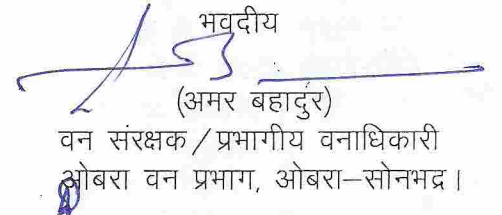 भवदीय
(अमर बहादुर)
वन संरक्षक / प्रभागीय वनाधिकारी
ओबरा वन प्रभाग, ओबरा–सोनभद्र ।